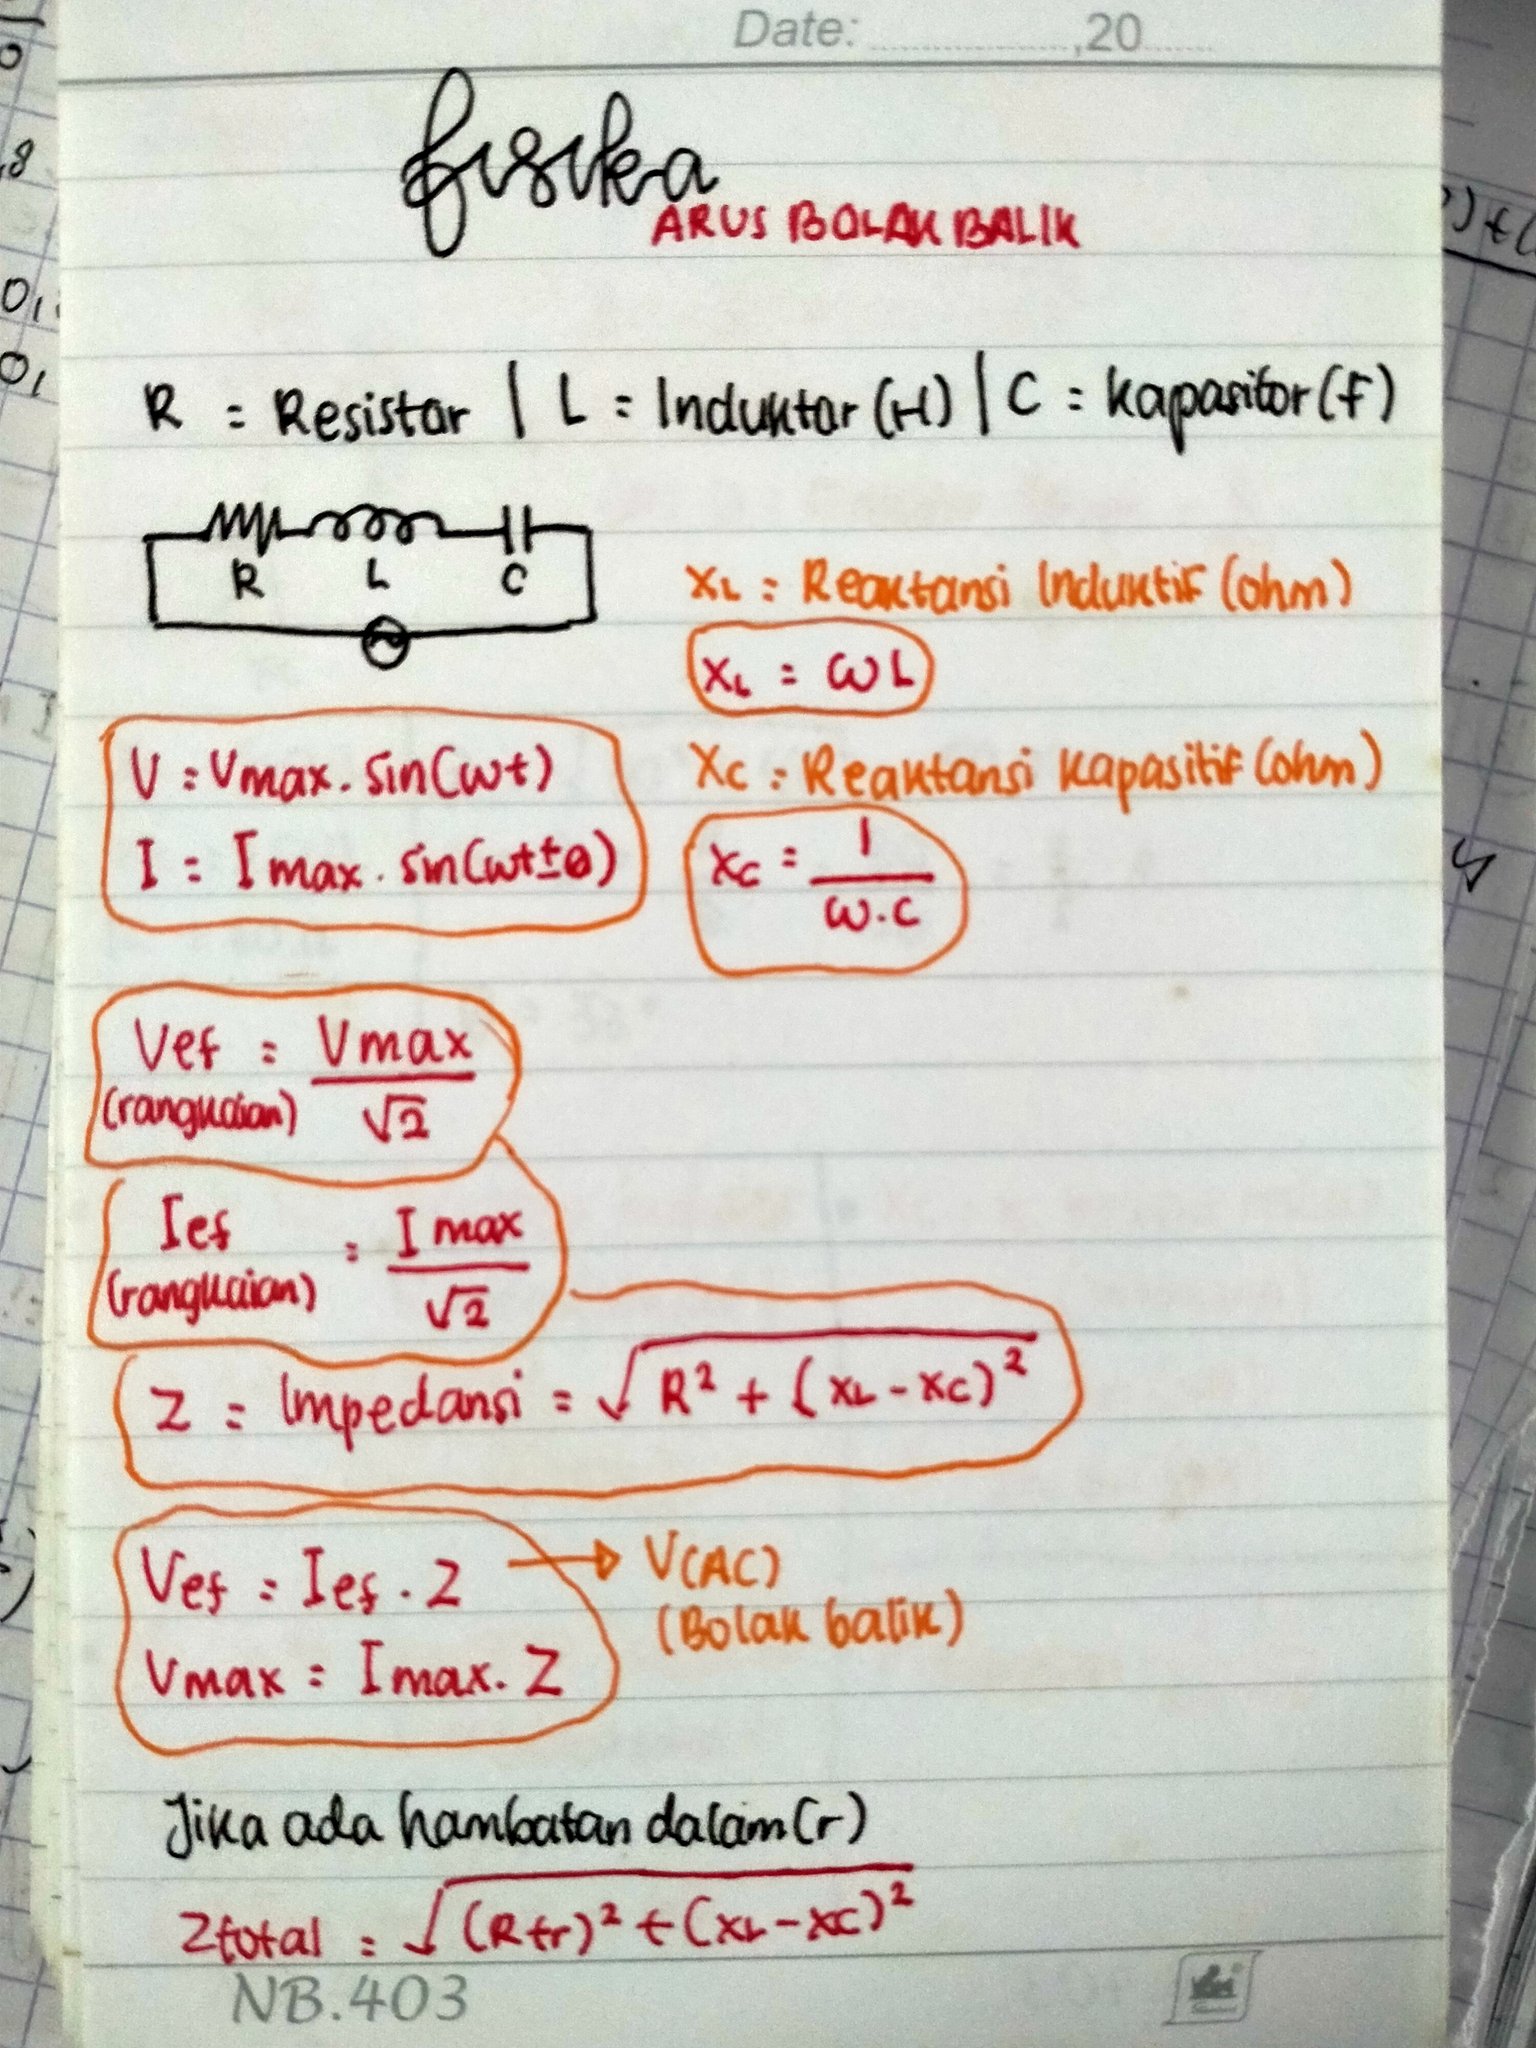 Date: ............,20......
fisika
ARUS BOLAK BALIK
R = Resistor | L = Induktor (H) | C = Kapasitor (f)
R L C
XL = Reaktansi Induktif (ohm)
XL = ωL
V = Vmax . sin(ωt)
I = I max . sin(ωt±θ)
XC = Reaktansi Kapasitif (ohm)
XC = 1 / ω.C
Vef (rangkaian) = Vmax / √2
Ief (rangkaian) = I max / √2
Z = Impedansi = √(R² + (XL - XC)²)
Vef = Ief . Z → V(AC)
(Bolak balik)
Vmax = Imax . Z
Jika ada hambatan dalam (r)
Ztotal = √((R+r)² + (XL - XC)²)
NB.403